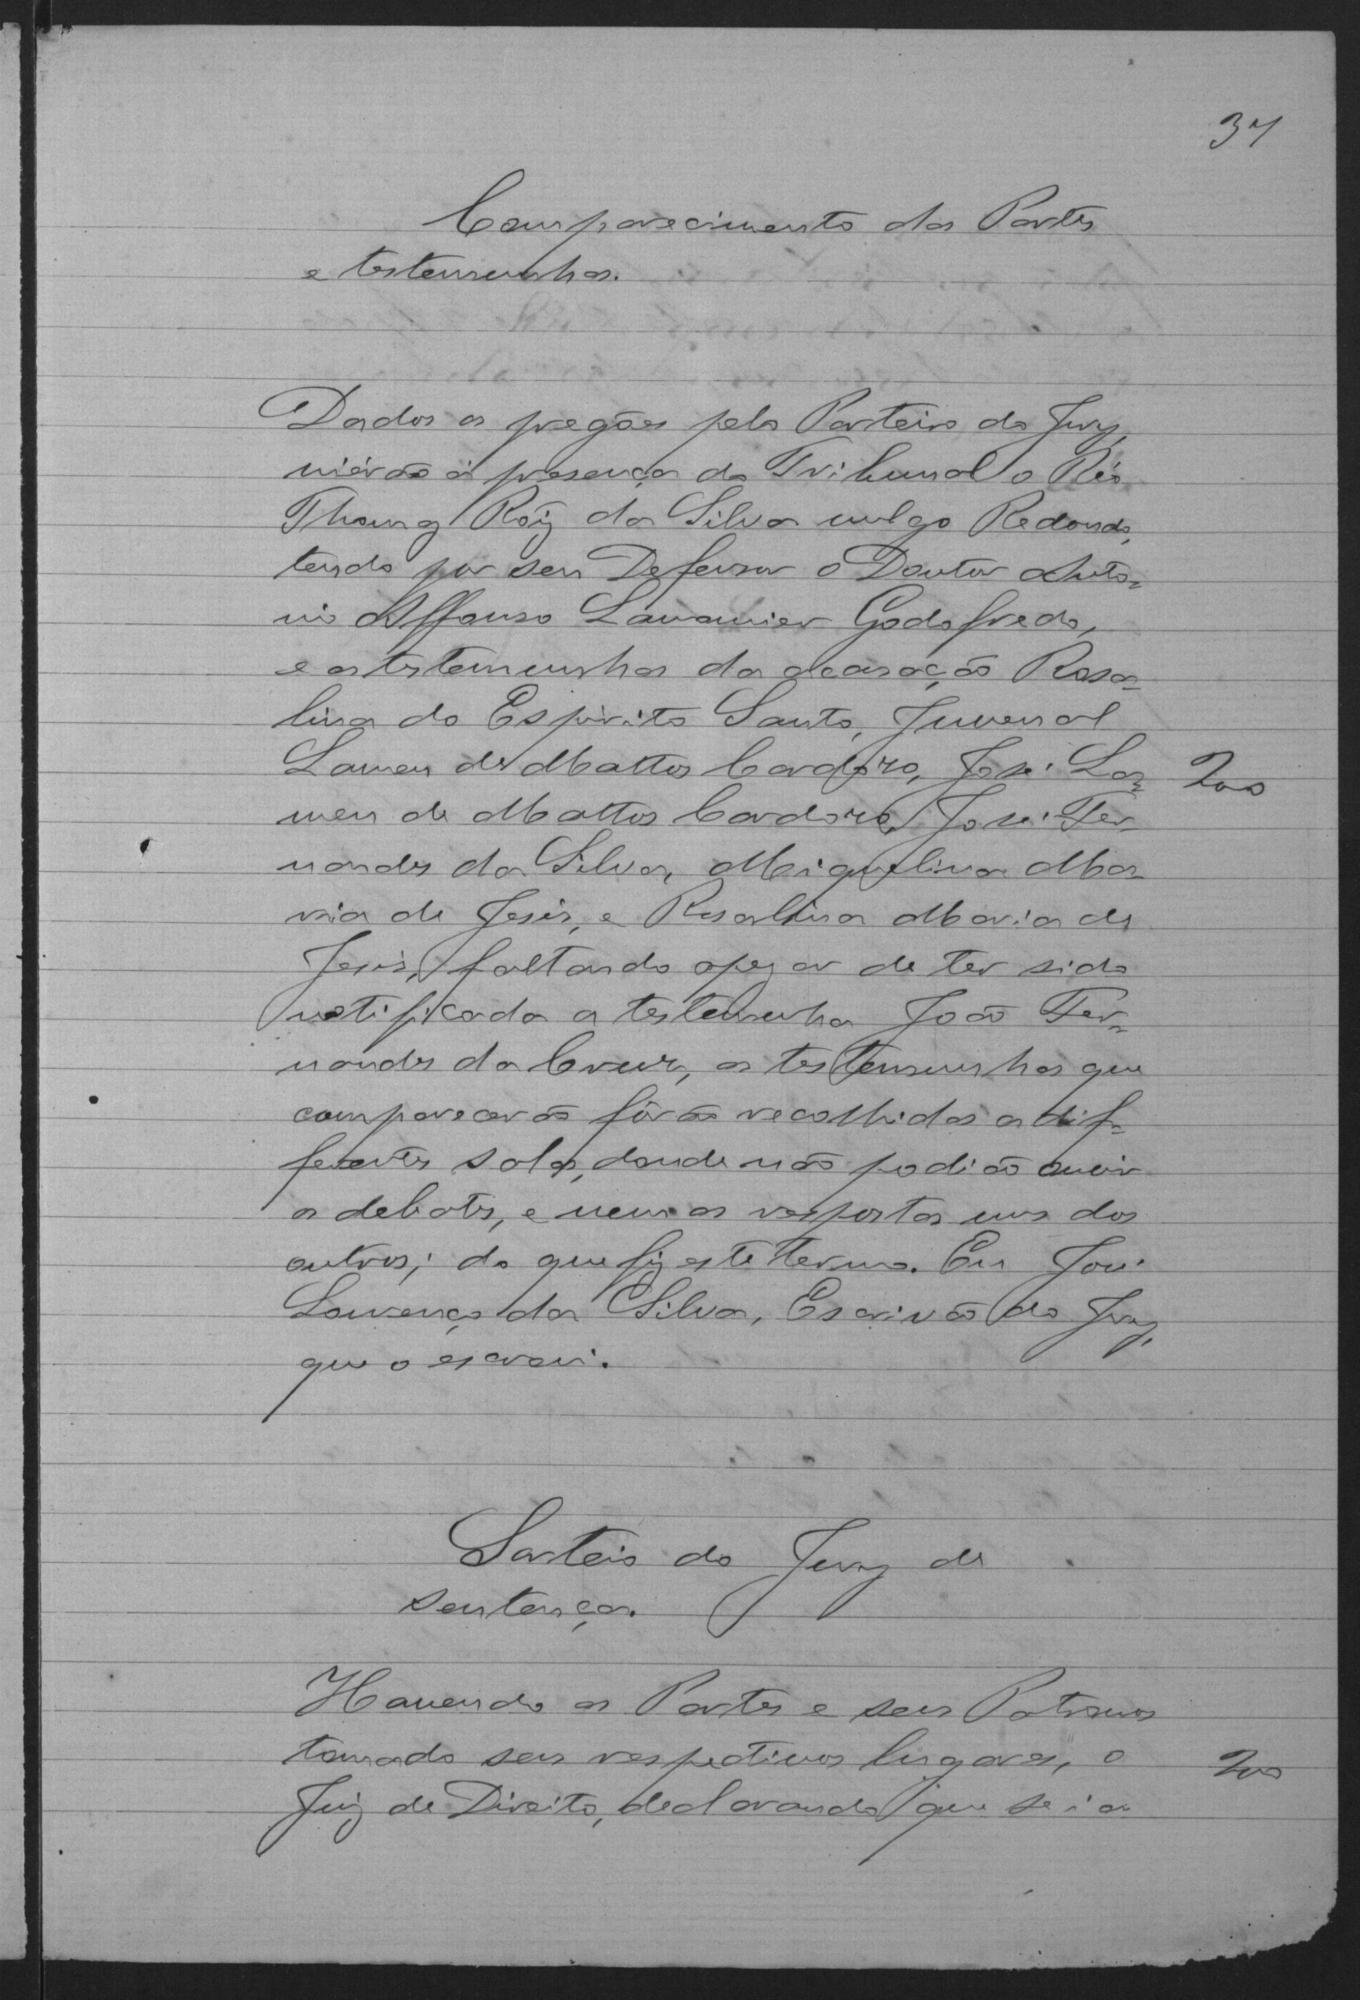 37
Comparecimento das Partes
e testemunhas.
Dados os pregões pelo Porteiro do Jury,
viérão á presença do Tribunal o Réo
Thomaz Roiz da Silva vulgo Redondo,
tendo por seu Defensor o Doutor Anto=
nio Affonso Lamounier Godofredo,
e as testemunhas da acusação Rosa=
lina do Espirito Santo, Juvenal
de Mattos Cardozo, José
200
de Mattos Cardozo, José Fer=
nandes da Silva, Miquelina Ma=
ria de Jesus, e Rosalina Maria de
Jesus, faltando apezar de ter sido
notificada a testemunha João Fer=
nandes da Cruz, as testemunhas que
comparecerão fôrão recolhidas a dif=
ferentes salas, donde não podião ouvir
os debates, e nem as respostas uns dos
outros; do que fiz este termo. Eu José
Lourenço da Silva, Escrivão do Jury,
que o escrevi.
Sorteio do Jury de
sentença.
Havendo as Partes e seus Patronos
tomado seus respectivos lugares, o
200
Juiz de Direito, declarando que se ia